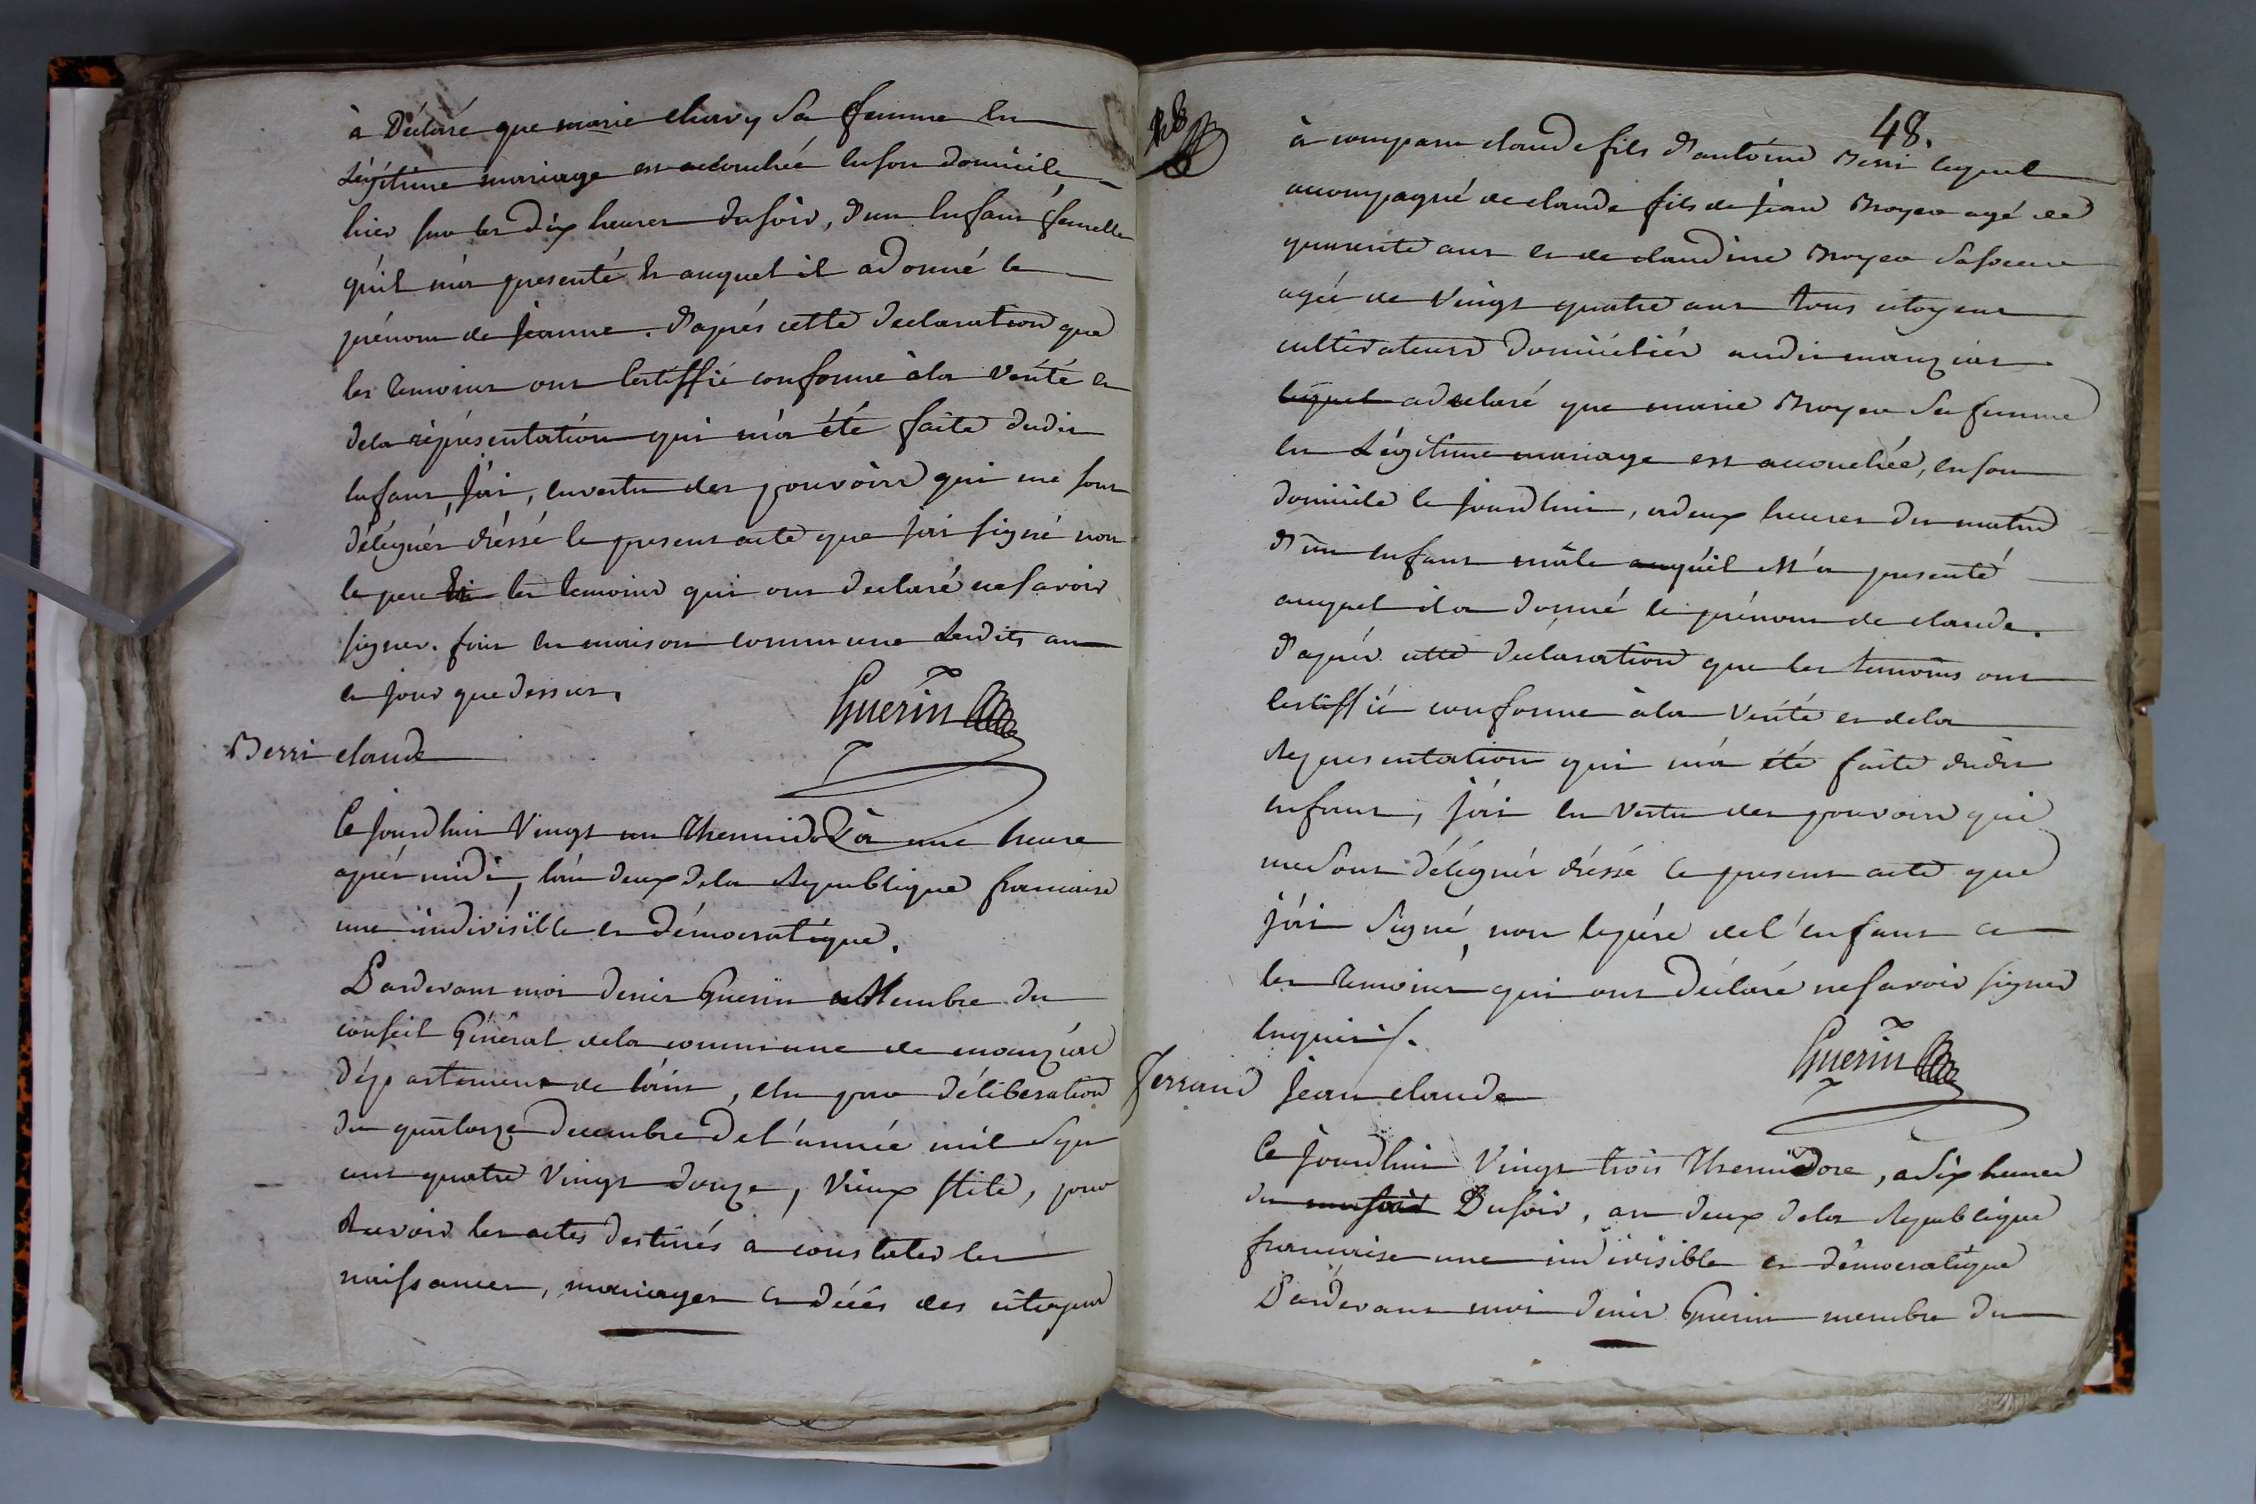 à Déclaré que marie Charvy Sa femme en
Légitime mariage est acouchée en son domicile
hier sur les dix heures du soir, d'un Enfant femelle
qu'il m'a presenté Et auquel il a donné le
prénom de Jeanne. D'après cette declaration que
les temoins ont Certiffié conforme à la Vérité et
de la réprésentation qui m'a été faite dudit
Enfant, J'ai, en vertu des pouvoirs qui me sont
délégués dréssé le present acte que j'ai signé non
le pere Et les temoins qui ont declaré ne savoir
signer. fait en maison commune Lesdits an
et jour que dessus.
Guerin
Berri claude
Ce Jourd'hui Vingt un Thermidor à une heure
après midi, l'an deux de la République francaise
une indivisible et démocratique.
Pardevant moi denis Guerin Membre du
conseil Général de la commune de manziat
département de l'ain, elu par déliberation
du quatorze decembre de l'année mil sept
cent quatre Vingt douze, Vieux stile, pour
Recevoir les actes destinés a constater les
naissances, mariages et décés des citoyens
48.
à comparu claude fils d'antoine Berri lequel
acompagné de claude fils de Jean Broyer agé de
quarente ans et de claudine Broyer Sa soeur
agée de Vingt quatre ans tous citoyens
cultivateurs domiciliés audit manziat
lequel a declaré que marie Broyer Sa femme
en Légitime mariage est acouchée, en son
domicile le Jourd'hui, a deux heures du matin
d'un Enfant mâle qu'il M'a presenté
auquel il a donné le prénom de claude.
D'après cette déclaration que les temoins ont
Certiffié conforme à la Vérité et de la
Représentation qui m'a été faite dudit
enfant, j'ai en Vertu des pouvoirs qui
me sont délégués dréssé le present acte que
j'ai Signé, non le pére de l'enfant et
les temoins qui ont déclaré ne savoir signer
Enquis.
Guerin
Ferrand Jean claude
Ce Jourd'hui Vingt trois Thermidore, a dix heures
du Du soir, an deux de la République
francaise une indivisible et démocratique
Pardevant moi denis Guerin membre du